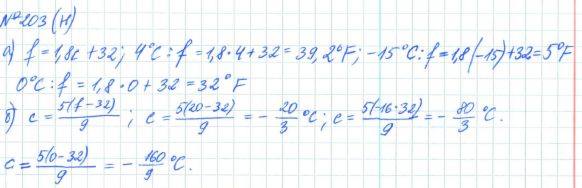 № 203 (н)
а) f = 1,8c + 32; 4°C : f = 1,8 · 4 + 32 = 39,2°F; -15°C : f = 1,8(-15) + 32 = 5°F
0°C : f = 1,8 · 0 + 32 = 32°F
б) c = 5(f-32)/9; c = 5(20-32)/9 = -20/3 °C; c = 5(-16·32)/9 = -80/3 °C.
c = 5(0-32)/9 = -160/9 °C.